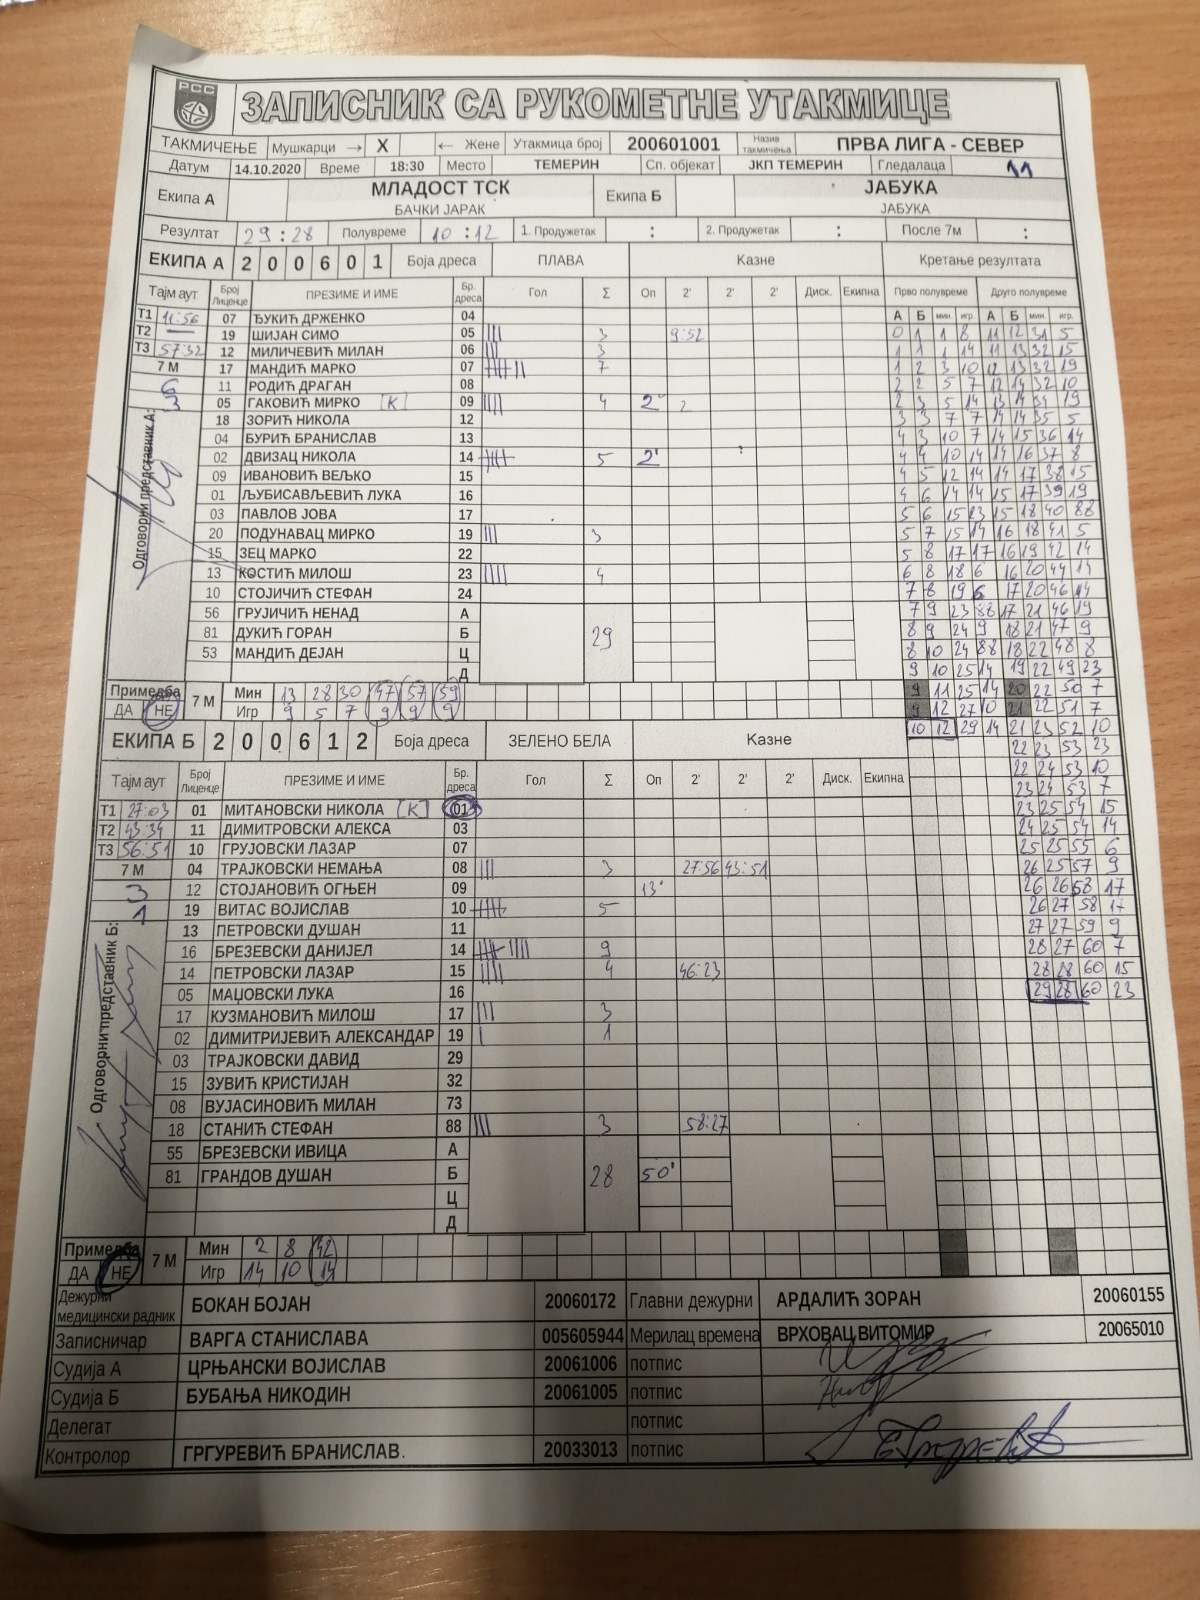 РСС
ЗАПИСНИК СА РУКОМЕТНЕ УТАКМИЦЕ
ТАКМИЧЕЊЕ Мушкарци → X ← Жене Утакмица број 200601001 Назив такмичења ПРВА ЛИГА - СЕВЕР
Датум 14.10.2020 Време 18:30 Место ТЕМЕРИН Сп. објекат ЈКП ТЕМЕРИН Гледалаца 11
Екипа А МЛАДОСТ ТСК Екипа Б ЈАБУКА
БАЧКИ ЈАРАК ЈАБУКА
Резултат 29:28 Полувреме 10:12 1. Продужетак : 2. Продужетак : После 7м :
ЕКИПА А 2 0 0 6 0 1 Боја дреса ПЛАВА Казне Кретање резултата
Тајм аут Број Лиценце ПРЕЗИМЕ И ИМЕ Бр. дреса Гол Σ Оп 2' 2' 2' Диск. Екипна Прво полувреме Друго полувреме
А Б мин. игр. А Б мин. игр.
Т1 11:56 07 ЂУКИЋ ДРЖЕНКО 04
Т2 19 ШИЈАН СИМО 05 III 3 9:52 0 1 1 8 11 12 31 5
Т3 57:32 12 МИЛИЧЕВИЋ МИЛАН 06 III 3 1 1 1 14 11 13 32 15
7 М 17 МАНДИЋ МАРКО 07 7 1 2 3 10 12 13 32 19
6 11 РОДИЋ ДРАГАН 08 2 2 5 7 12 14 32 10
3 05 ГАКОВИЋ МИРКО [К] 09 IIII 4 2' 2 3 5 14 13 14 34 19
18 ЗОРИЋ НИКОЛА 12 3 3 7 7 14 14 35 5
04 БУРИЋ БРАНИСЛАВ 13 4 3 10 7 14 15 36 14
02 ДВИЗАЦ НИКОЛА 14 5 2' 4 4 10 14 14 16 37 8
09 ИВАНОВИЋ ВЕЉКО 15 4 5 12 14 14 17 38 15
01 ЉУБИСАВЉЕВИЋ ЛУКА 16 4 6 14 14 15 17 39 19
03 ПАВЛОВ ЈОВА 17 5 6 15 23 15 18 40 88
20 ПОДУНАВАЦ МИРКО 19 III 3 5 7 15 14 16 18 41 5
15 ЗЕЦ МАРКО 22 5 8 17 17 16 19 42 14
13 КОСТИЋ МИЛОШ 23 IIII 4 6 8 18 6 16 20 44 14
10 СТОЈИЧИЋ СТЕФАН 24 7 8 19 6 17 20 46 14
56 ГРУЈИЧИЋ НЕНАД А 7 9 23 88 17 21 46 19
81 ДУКИЋ ГОРАН Б 29 8 9 24 9 18 21 47 9
53 МАНДИЋ ДЕЈАН Ц 8 10 24 88 18 22 48 8
Д 9 10 25 14 19 22 49 23
Одговорни представник А:
Примедба 7 М Мин 13 28 30 47 57 59 9 11 25 14 20 22 50 7
ДА НЕ Игр 9 5 7 9 9 9 9 12 27 10 21 22 51 7
ЕКИПА Б 2 0 0 6 1 2 Боја дреса ЗЕЛЕНО БЕЛА Казне 10 12 29 14 21 23 52 10
22 23 53 23
Тајм аут Број Лиценце ПРЕЗИМЕ И ИМЕ Бр. дреса Гол Σ Оп 2' 2' 2' Диск. Екипна 22 24 53 10
23 24 53 7
Т1 27:03 01 МИТАНОВСКИ НИКОЛА [К] 01 23 25 54 15
Т2 43:34 11 ДИМИТРОВСКИ АЛЕКСА 03 24 25 54 14
Т3 56:51 10 ГРУЈОВСКИ ЛАЗАР 07 25 25 55 6
7 М 04 ТРАЈКОВСКИ НЕМАЊА 08 III 3 27:56 43:51 26 25 57 9
3 12 СТОЈАНОВИЋ ОГЊЕН 09 13' 26 26 58 17
1 19 ВИТАС ВОЈИСЛАВ 10 5 26 27 58 17
13 ПЕТРОВСКИ ДУШАН 11 27 27 59 9
16 БРЕЗЕВСКИ ДАНИЈЕЛ 14 9 28 27 60 7
14 ПЕТРОВСКИ ЛАЗАР 15 IIII 4 46:23 28 28 60 15
05 МАЏОВСКИ ЛУКА 16 29 28 60 23
17 КУЗМАНОВИЋ МИЛОШ 17 III 3
02 ДИМИТРИЈЕВИЋ АЛЕКСАНДАР 19 I 1
03 ТРАЈКОВСКИ ДАВИД 29
15 ЗУВИЋ КРИСТИЈАН 32
08 ВУЈАСИНОВИЋ МИЛАН 73
18 СТАНИЋ СТЕФАН 88 III 3 58:27
55 БРЕЗЕВСКИ ИВИЦА А
81 ГРАНДОВ ДУШАН Б 28 50'
Ц
Д
Одговорни представник Б:
Примедба 7 М Мин 2 8 42
ДА НЕ Игр 14 10 14
Дежурни медицински радник БОКАН БОЈАН 20060172 Главни дежурни АРДАЛИЋ ЗОРАН 20060155
Записничар ВАРГА СТАНИСЛАВА 005605944 Мерилац времена ВРХОВАЦ ВИТОМИР 20065010
Судија А ЦРЊАНСКИ ВОЈИСЛАВ 20061006 потпис
Судија Б БУБАЊА НИКОДИН 20061005 потпис
Делегат потпис
Контролор ГРГУРЕВИЋ БРАНИСЛАВ. 20033013 потпис